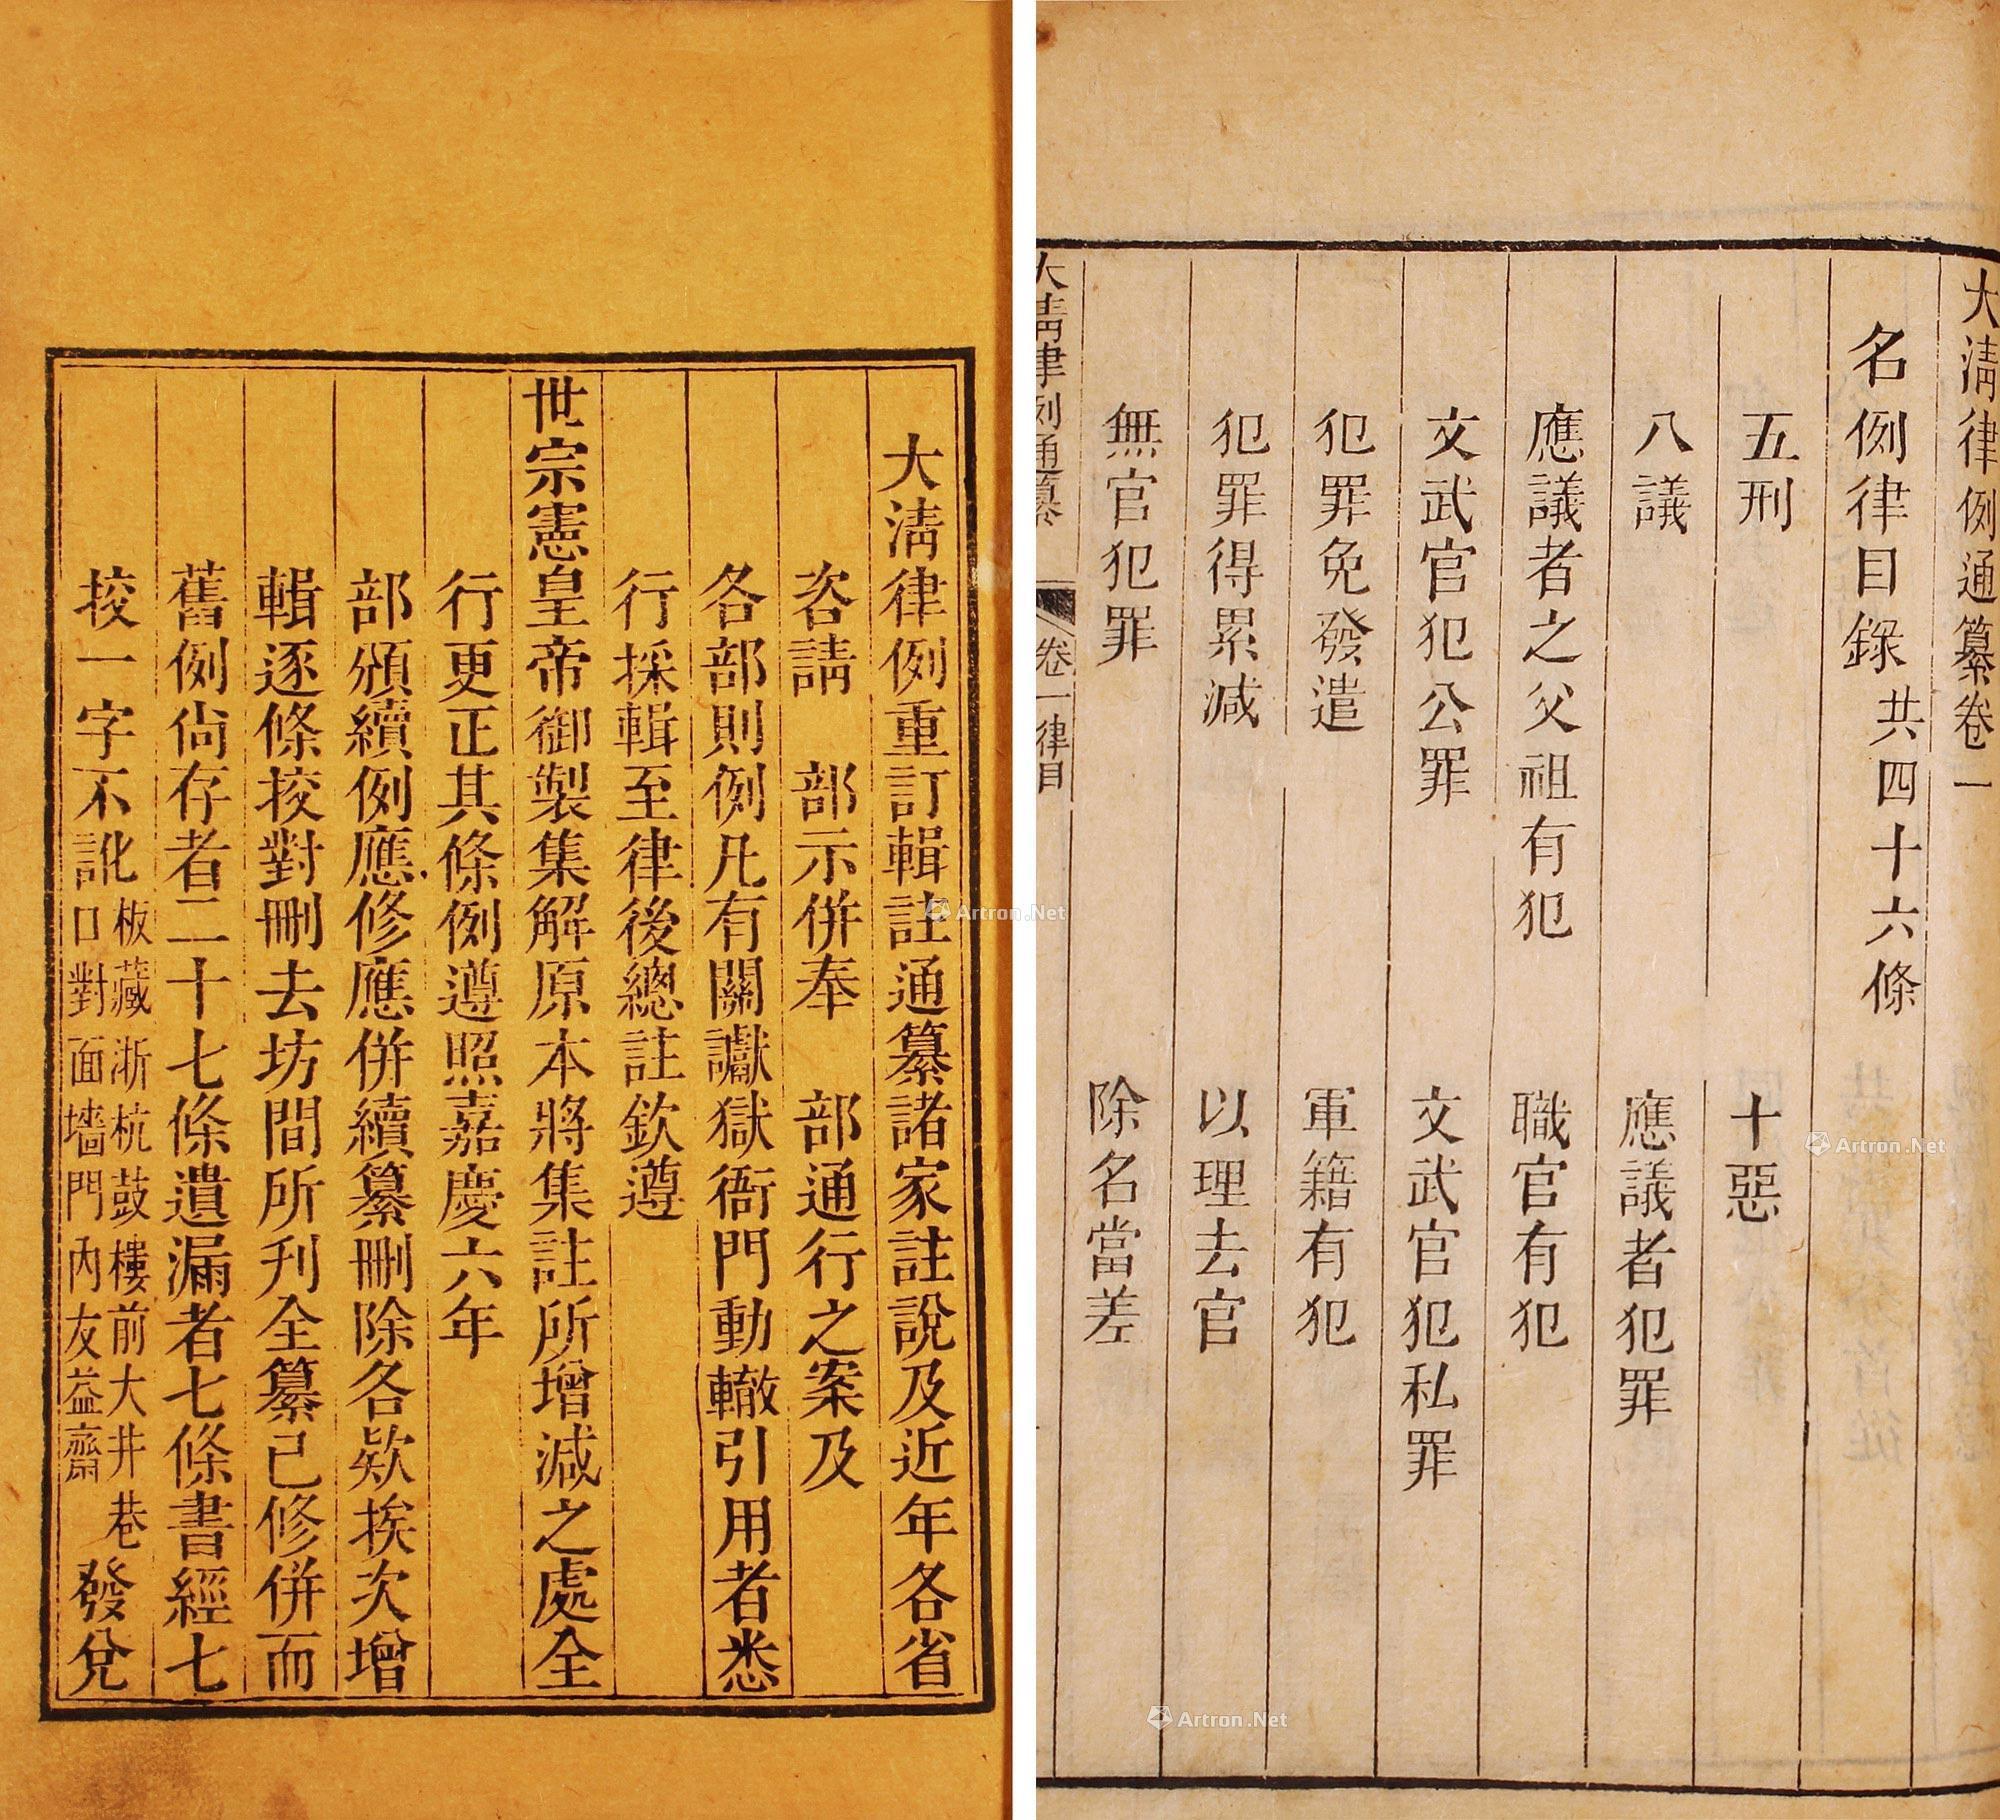 大淸律例重訂輯註通纂諸家註說及近年各省
咨請 部示併奉 部通行之案及
各部則例凡有關讞獄衙門動轍引用者悉
行採輯至律後總註欽遵
世宗憲皇帝御製集解原本將集註所增減之處全
行更正其條例遵照嘉慶六年
部頒續例應修應併續纂刪除各欵挨次增
輯逐條挍對刪去坊間所刋全纂已修併而
舊例尙存者二十七條遺漏者七條書經七
挍一字不訛
板藏浙杭鼓樓前大井巷
口對面墻門內友益齋
發兌
大淸律例通纂卷一
名例律目錄共四十六條
五刑 十惡
八議 應議者犯罪
應議者之父祖有犯 職官有犯
文武官犯公罪 文武官犯私罪
犯罪免發遣 軍籍有犯
犯罪得累減 以理去官
無官犯罪 除名當差
大淸律例通纂 卷一律目
Artron.Net
Artron.Net
Artron.Net